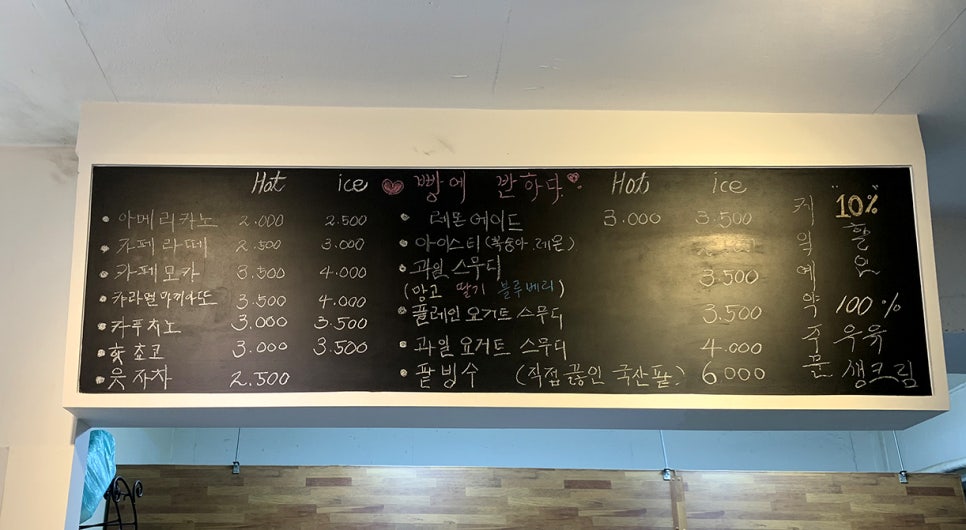 Hot ice
• 아메리카노 2.000 2.500
• 카페라떼 2.500 3.000
• 카페모카 3.500 4.000
• 카라멜마끼아또 3.500 4.000
• 카푸치노 3.000 3.500
• 핫초코 3.000 3.500
• 유자차 2.500
빵에 반하다 Hot ice
• 레몬에이드 3.000 3.500
• 아이스티 (복숭아.레몬)
• 과일 스무디 3.500
(망고 딸기 블루베리)
• 플레인 요거트 스무디 3.500
• 과일 요거트 스무디 4.000
• 팥빙수 (직접 끓인 국산팥) 6.000
케익예약주문
"10%"
할인
100%
우유
생크림